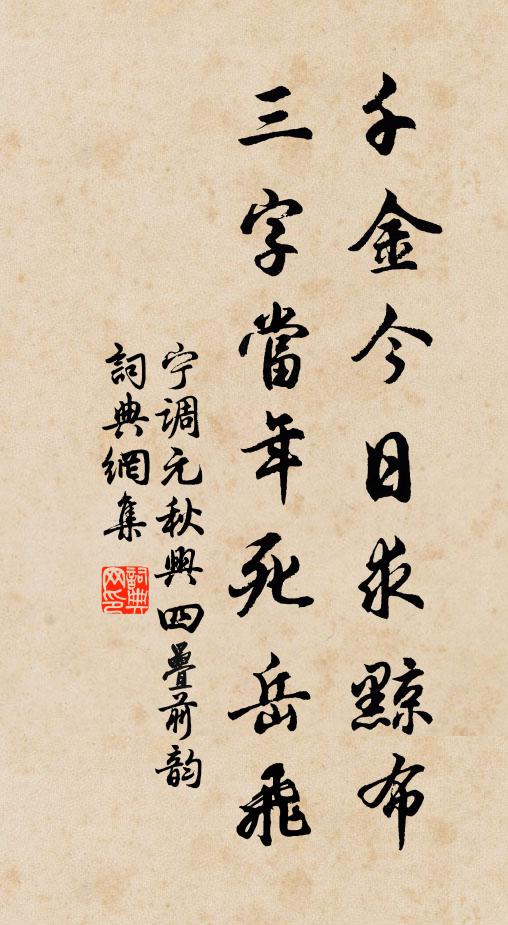 千金今日求黥布
三字當年死岳飛
宁调元秋興四疊前韵
詞典網集
詞典网印